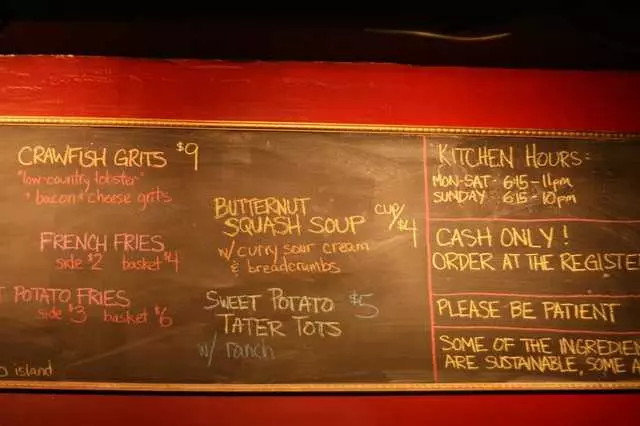 CRAWFISH GRITS $9
"low-country lobster"
+ bacon + cheese grits
FRENCH FRIES
side $2 basket $4
T POTATO FRIES
side $3 basket $6
O island
BUTTERNUT
SQUASH SOUP cup/$4
w/ curry sour cream
& breadcrumbs
SWEET POTATO $5
TATER TOTS
w/ ranch
KITCHEN HOURS:
MON-SAT - 6:15 - 11pm
SUNDAY - 6:15 - 10pm
CASH ONLY!
ORDER AT THE REGISTE
PLEASE BE PATIENT
SOME OF THE INGREDIEN
ARE SUSTAINABLE, SOME A